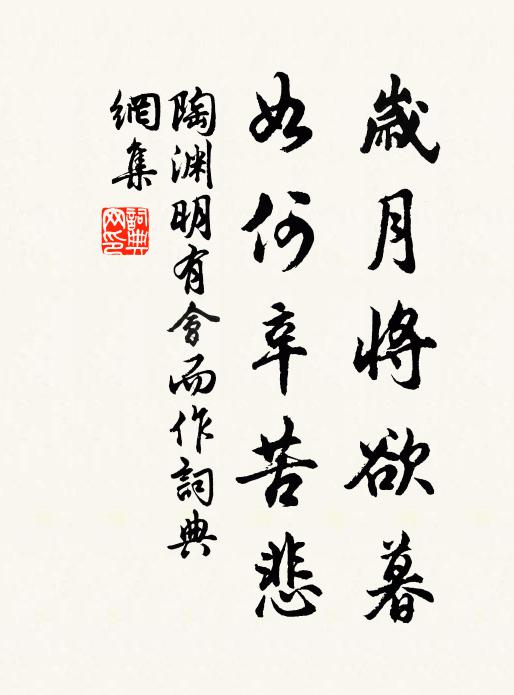 歲月將欲暮
如何辛苦悲
陶渊明有會而作詞典
網集
詞典网印